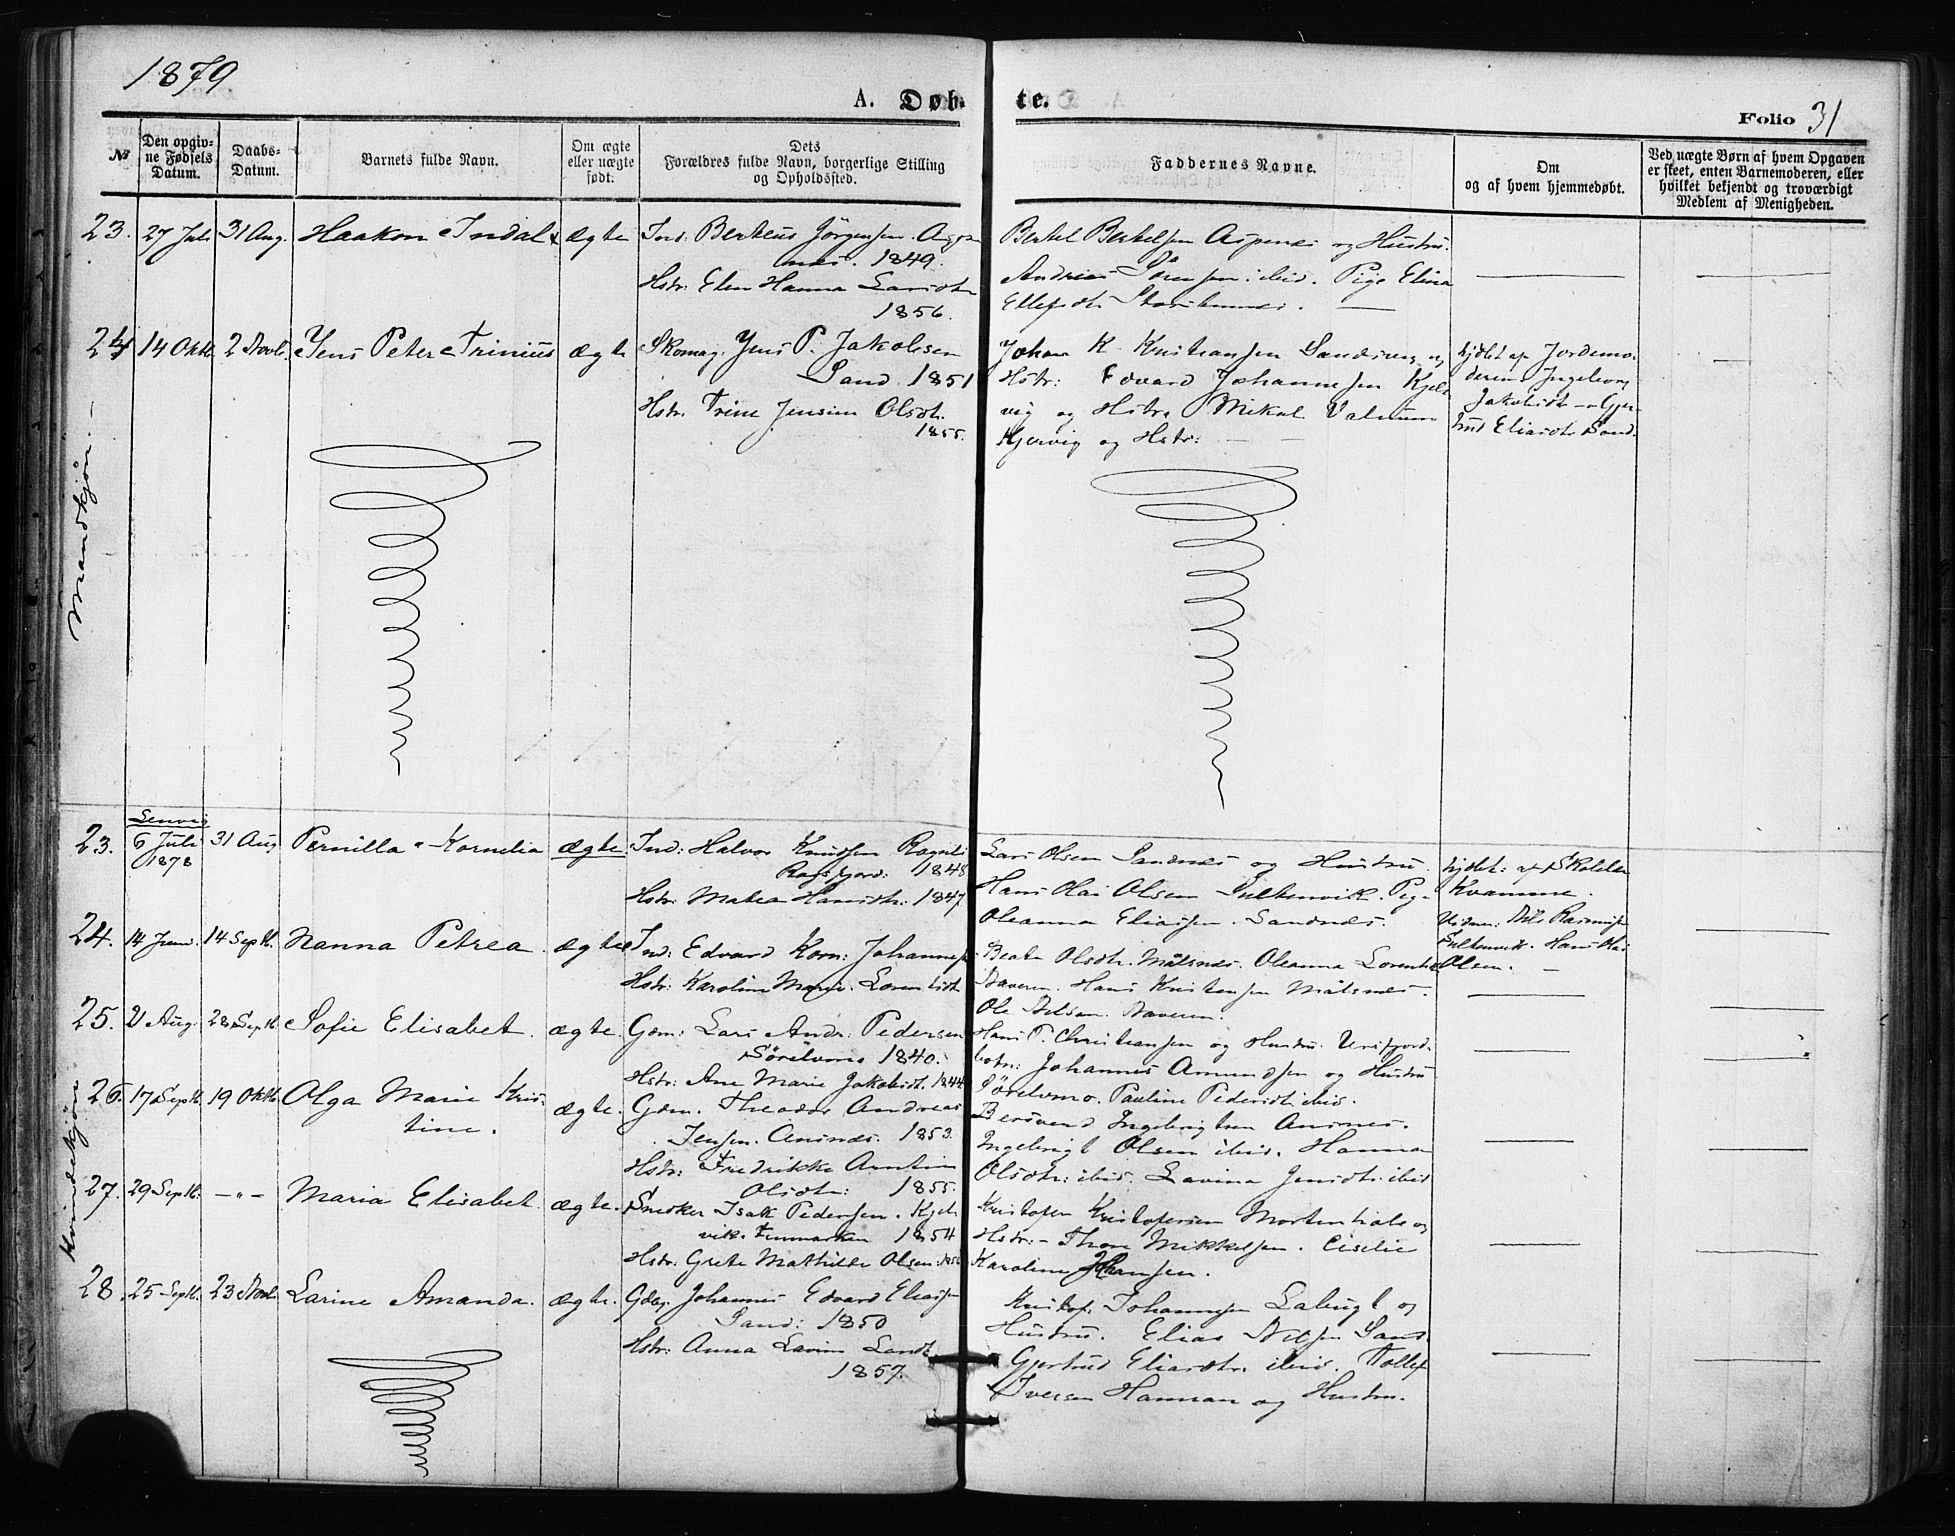 1879
A. Døb- te.
Folio 31
№
Den opgivne Fødsels Datum.
Daabs-Datum.
Barnets fulde Navn.
Om ægte eller uægte født.
Dets Forældres fulde Navn, borgerlige Stilling og Opholdssted.
Faddernes Navne.
Om og af hvem hjemmedøbt.
Ved uægte Børn af hvem Opgaven er skeet, enten Barnemoderen, eller hvilket bekjendt og troværdigt Medlem af Menigheden.
Mandkjøn.
23. 27 Juli 31 Aug. Haakon Indal ægte Ind. Berteus Jörgensen
1849.
Hstr: Elen Hanna Larsdtr
1856.
Bertel Bertelsen Aspenes og Hustru.
Andreas Sørensen ibid. Pige Elina
Ellefsdtr
24 14 Oktb. 2 Novb. Jens Peter Trinius ægte Skomag. Jens P. Jakobsen
Sand. 1851
Hstr. Trine Jensine Olsdtr.
1855.
Johan K. Kristiansen og
Hstr: Edvard Johannesen Kjel-
vig og Hstr. Mikal Valnum
Kjervig og Hstr:
hjdbt af Jordemo-
deren Ingeborg
Jakobsdtr og Gjer-
trud Eliasdtr Sand.
Kvindekjøn
Lenvig
23. 6 Juli 1878 31 Aug Pernilla Kornelia ægte Ind: Halvor Knudsen
1848
Hstr: Matea Hansdtr. 1847
Lars Olsen Sandnes og Hustru.
Hans Olai Olsen Pige
Oleanna Eliassen. Sandnes.
hjdbt: af
Kvamme.
Olsen.
24. 14 Juni. 14 Septb. Nanna Petrea ægte Ind: Edvard Korn: Johannes
Hstr: Karoline Marie Lorentsdtr
Beate Olsdtr. Målsnes. Oleanna Lorentsd
Hans Kristensen Målsnes.
Ole Nilsen.
25. 2 Aug. 28 Septb. Sofie Elisabet. ægte. Gdm: Lars Andr: Pedersen
Sørelvmo 1840.
Hstr: Ane Marie Jakobsdt. 1844
Hans P. Christiansen og Hustru.
Johannes Amundsen og Hustru
Sørelvmo. Pauline Pedersdt ibid.
26. 17 Septb. 19 Oktb. Olga Marie Kris-
tine.
ægte. Gdm. Theodor Andreas
Jensen. Ansnes. 1853.
Hstr: Fredrikke Arntine
Olsdtr: 1855.
Berdvend Ingebrigtsen Ansnes.
Ingebrigt Olsen ibid. Hanna
Olsdtr: ibid. Lavina Jensdtr: ibid
27. 29 Septb. — " — Maria Elisabet. ægte. Snedker Isak Pedersen. Kjel-
vik. Finmarken 1854
Hstr: Grete Mathilde Olsen:
Kristofer Kristofersen Mortenhals og
Hstr: Thore Mikkelsen. Cicelie
Karoline Johansen.
28. 25 Septb. 23 Novb. Larine Amanda. ægte. Johannes Edvard Eliassen
Sand: 1850
Hstr: Anna Lavine
1857.
Kristof. Johannesen Labugt og
Hustru. Elias Nilsen Sand.
Gjertrud Eliasdtr. ibid. Tollef
Iversen og Hustru.